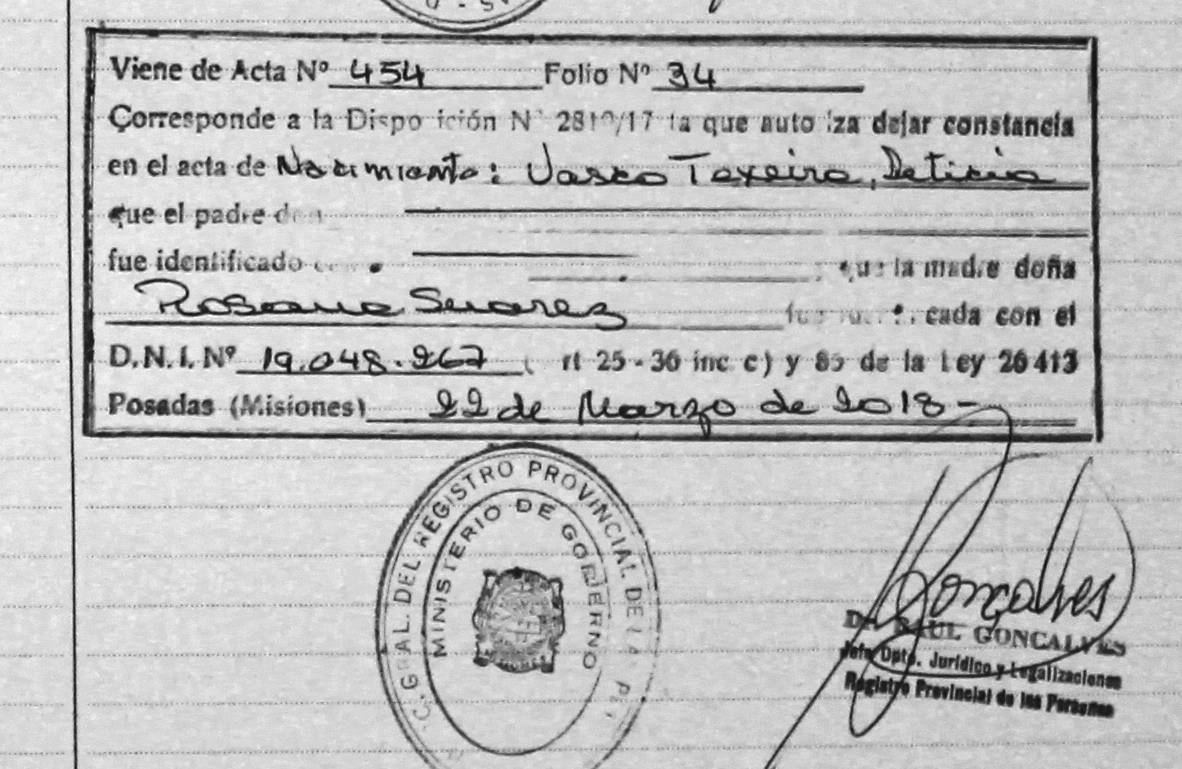 Viene de Acta Nº 454 Folio Nº 34
Corresponde a la Dispo ición N 281º/17 ta que auto iza dejar constancia
en el acta de Nacimiento: Vasco Texeira, Leticia
que el padre don
fue identificado que la madre doña
Roseana Suarez cada con el
D.N.I. Nº 19.048.267 ( rt 25 - 36 inc c) y 85 de la Ley 26413
Posadas (Misiones) 22 de Marzo de 2018 -
GRAL. DEL REGISTRO PROVINCIAL DE LA
MINISTERIO DE GOBIERNO
Gonçalves
Dr. RAUL GONCALVES
Jefe Dpto. Jurídico y Legalizaciones
Registro Provincial de las Personas